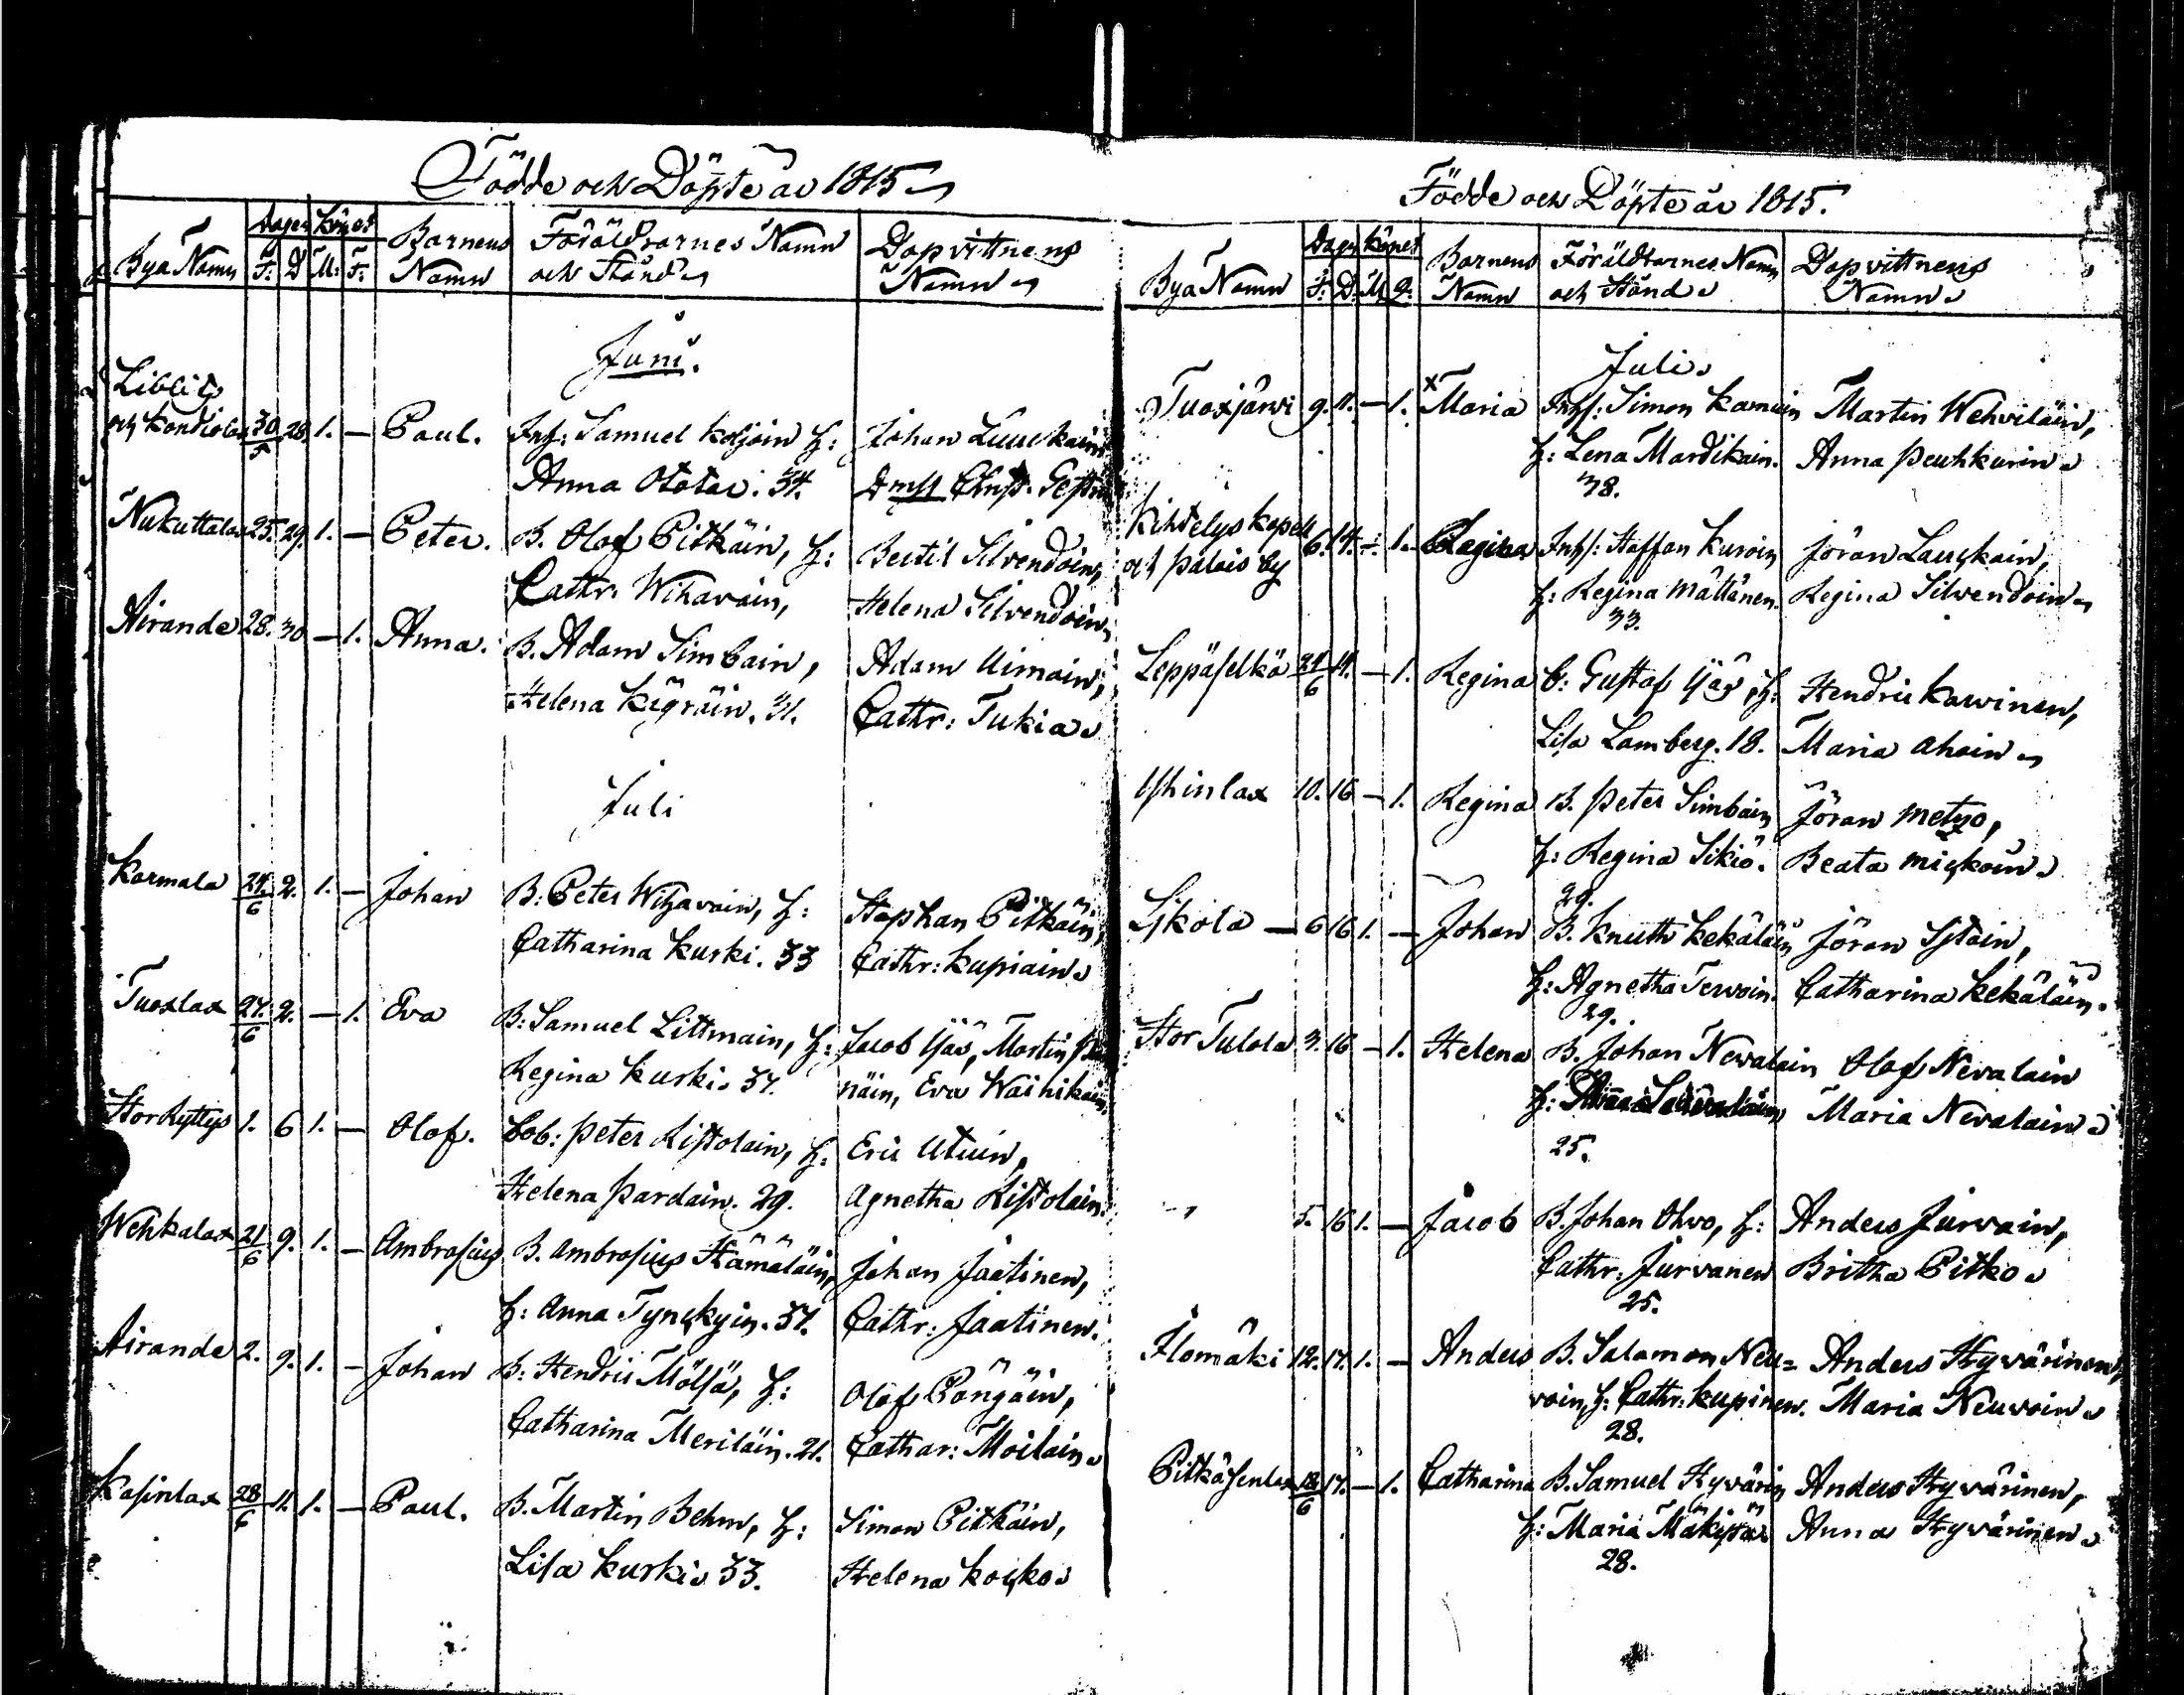 Födde och Döpte år 1815
Bya Namn F: D M: F. Dagen Könet Barnens Namn Föräldrarnes Namn och Stånd Dopvittnens Namn
Juni.
Libelits
och Kondiola 30/5 28. 1. — Paul. Inh: Samuel Koljoin H: Johan Luuckain
Anna Ototar. 34.
Nukuttalax 25. 29. 1. — Peter. B. Olof Pitkäin, H: Bertil Silvendoin,
Cathr. Wihavain, Helena Silvendoin
Hirande 28. 30 — 1. Anna. B. Adam Simbain, Adam Uimain,
Helena Kigräin. 31. Cathr: Tukia
Juli
Karmala 24/6 2. 1. — Johan B: Peter Wihavain, H: Staphan Pitkäin,
Catharina Kurki. 33 Cathr: Kupiain
Tuoxlax 27/6 2. — 1. Eva B: Samuel Littmain, H: Jacob Yäs, Martin
Regina Kurki 37. näin, Eva Waihikain
Stor Ryttys 1. 6 1. — Olof. Bob: Peter Ristolain, H: Eric Utuin,
Helena Pardain. 29. Agnetha Ristolain.
Wehkalax 21/6 9. 1. — Ambrosius B. Ambrosius Hämäläin, Johan Jaatinen,
H: Anna Tynskyin. 37. Cathr: Jaatinen.
Hirande 2. 9. 1. — Johan B: Hendric Mölsä, H: Olof Pöngäin,
Catharina Meriläin. 21. Cathar: Moilain
Kasinlax 28/6 11. 1. — Paul. B. Martin Behm, H: Simon Pitkäin,
Lisa Kurki 33. Helena Koisko
Födde och Döpte år 1815.
Bya Namn Dagen Könet F. D. M Q. Barnens Namn Föräldrarnes Namn och Stånd Dopvittnens Namn
Juli
Tuoxjärvi 9. 11. — 1. x Maria Inh: Simon Kamuin Martin Wehviläin,
H: Lena Mardikain. Anna Peuhkurin
38.
Kihtelys Kapell
och Palais by 6. 14. — 1. Regina Inh: Staffan Kuroin Jöran Lauskain,
H: Regina Mättänen. Regina Silvendoin
33.
Leppäselkä 24/6 14. — 1. Regina B: Gustaf Yäs, H: Hendric Karvinen,
Lisa Lamberg. 18. Maria Ahoin
Ushinlax 10. 16 — 1. Regina B. Peter Simbain Jöran Metzo,
H: Regina Sikiö. Beata Mickoin
29.
Sjkola — 6 16 1. — Johan B. Knuth Kekäläin Jöran Sjtäin,
H: Agnetha Tervoin. Catharina Kekäläin.
29.
Stor Tulola 3. 16 — 1. Helena B. Johan Nevalain Olof Nevalain
H: Maria Nevalain
25.
" 5. 16 1. — Jacob B. Johan Ohvo, H: Anders Jurvain,
Cathr: Jurvanen Britha Pitko
25.
Ilomäki 12. 17. 1. — Anders B. Salamon Neu= Anders Hyvärinen,
voin, H: Cathr: Kupinen. Maria Neuvoin
28.
Pitkäsenlax 18/6 17. — 1. Catharina B. Samuel Hyvärin Anders Hyvärinen,
H: Maria Mäkipää Anna Hyvärinen
28.